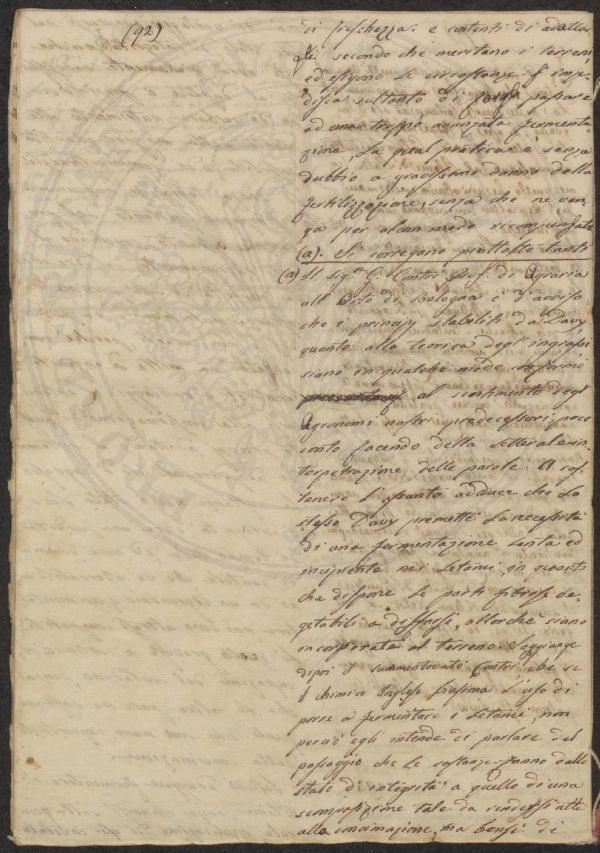 (92)
di freschezza: e contenti di adattar-
gli secondo che meritano i terreni
ed esigono le circostanze s'impe-
disca soltanto di passare
ad una troppo avanzata fermenta-
zione, la qual pratica è senza
dubbio a gravissimo danno della
fertilizzazione, senza che ne ven-
ga per alcun modo ricompensata
(a). Si corregano piuttosto tanti
(a) Il sig.r Contri Prof. di Agraria
all' Orto di Bologna è d'avviso
che i principj stabiliti da Davy
quanto alla teorica degl' ingrassi
siano in qualche modo conformi
al sentimento degl'
Agronomi nostri predecessori poco
conto facendo della letterale in-
terpetrazione delle parole. A sos-
tenere l'assunto adduce che lo
stesso Davy premette la necessità
di una fermentazione lenta ed
incipiente nei letami, in quanto
che dispone le parti fibrose ve-
getabili a disfarsi, allorchè siano
incorporate al terreno. Soggiunge
dipoi il summentovato Contri, che se
il chimico Inglese biasima l'uso di
porre a fermentare i letami, non
perciò egli intende di parlare del
passaggio che le sostanze fanno dallo
stato d'integrità a quello di una
scomposizione tale da renderssi atte
alla concimazione, ma bensì di